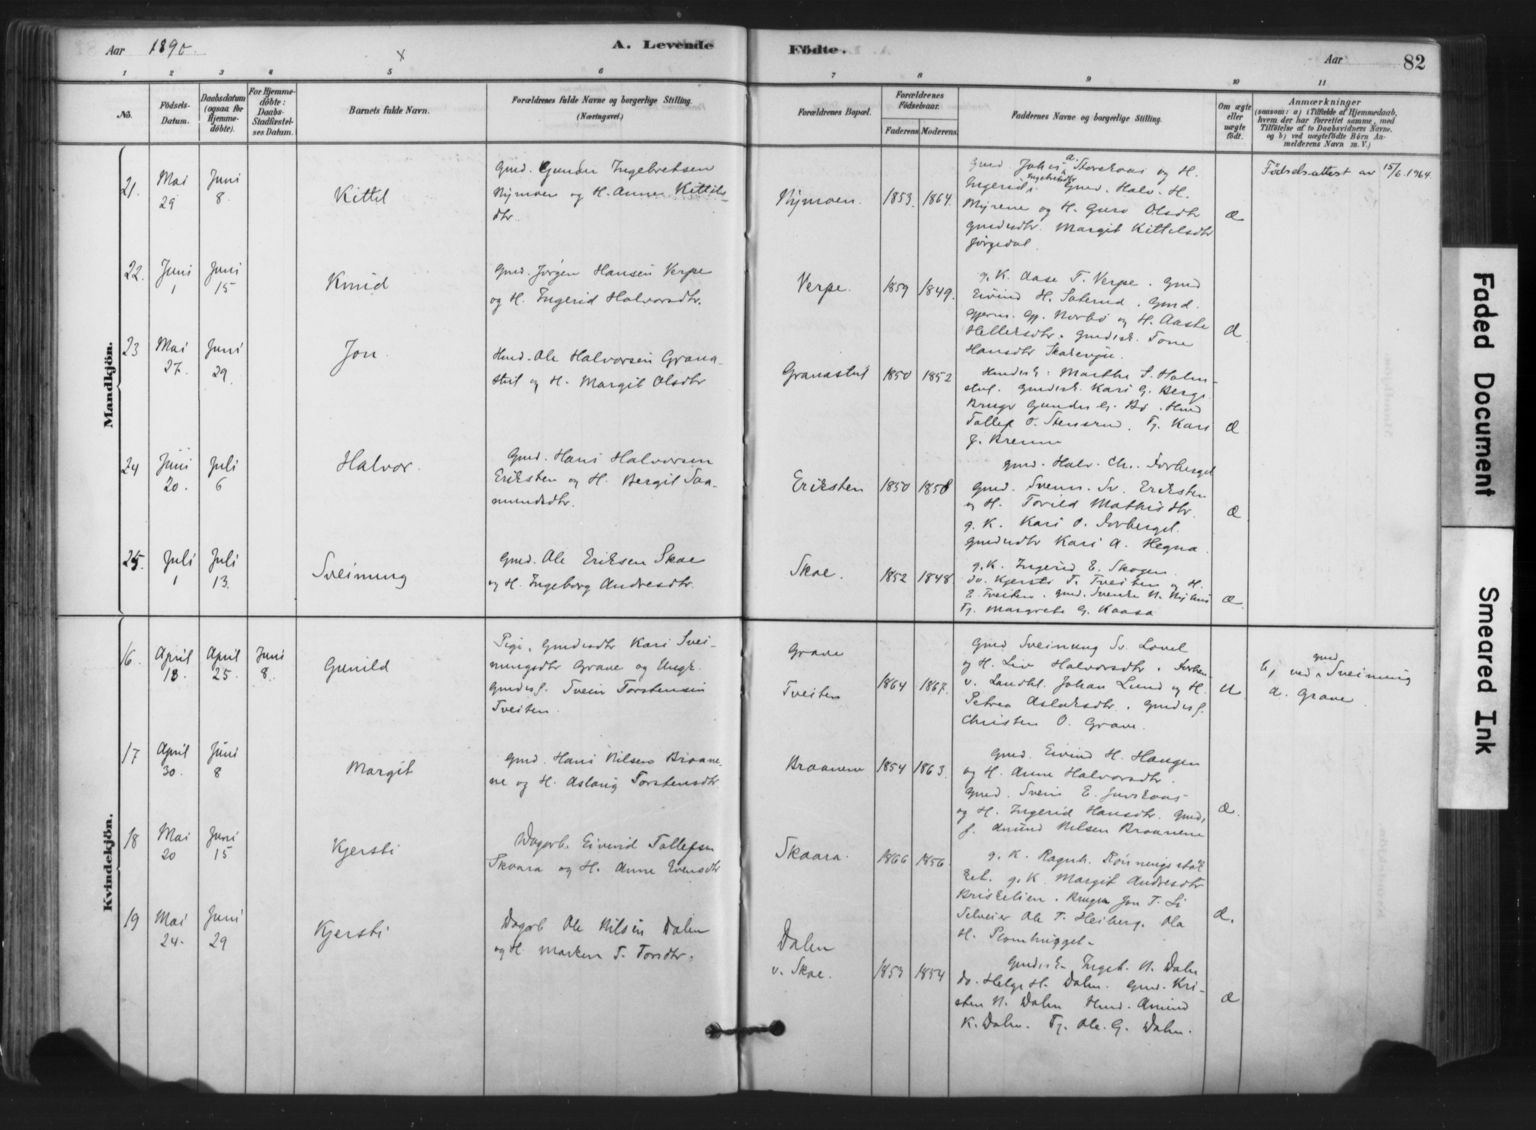 Aar 1890.
A. Levende
Fødte.
Aar
82
1 2 3 4 5 6 7 8 9 10 11
No.
Fødsels-
Datum.
Daabsdatum
(ogsaa for
Hjemme-
døbte).
For Hjemme-
døbte:
Daabs-
Stadfæstel-
ses Datum.
Barnets fulde Navn.
Forældrenes fulde Navne og borgerlige Stilling.
(Næringsvei)
Forældrenes Bopæl.
Forældrenes
Fødselsaar.
Faderens
Moderens.
Faddernes Navne og borgerlige Stilling.
Om ægte
eller
uægte
født.
Anmærkninger
(saasom: a) i Tilfælde af Hjemmedaab,
hvem der har forrettet samme, med
Tilføielse af to Daabsvidners Navne.
og b) ved uægtefødte Børn An-
melderens Navn m. V.)
Mandkjøn.
21.
Mai
29
Juni
8.
Kittil
Gmd. Gunder Ingebretsen
Nymoen og H. Anne Kittils-
dtr.
Nymoen.
1853.
1864.
Gmd. Johis A. Storekaas og H.
Ingerid Ingebretsdtr Gmd. Halv. H.
Myrene og H. Guro Olsdtr
gmdsdtr. Margit Kittelsdtr
Jørgedal.
Æ
Fødselsattest av 15/6.1964
22.
Juni
1
Juni
15
Knud
Gmd. Jørgen Hansen Verpe
og H. Ingerid Halvorsdtr.
Verpe.
1859
1849.
g. K. Aase T. Verpe. Gmd
Eivind H. Saterud. Gmd.
Norbø og H. Aaste
Helleksdtr. gmdsk. Tone
Hansdtr
Æ
23
Mai
27.
Juni
29.
Jon
Hmd. Ole Halvorsen Grana-
stul og H. Margit Olsdtr
Granastul
1850
1852
Hmdsk. Marthe S. Holm-
stul. gmdsk. Kari G. Berge
Bruger Gunder G. Bø. Hmd
Tollef O. Stensrud. Tj. Kari
J. Brenne
Æ
24
Juni
20.
Juli
6
Halvor.
Gmd. Hans Halvorsen
Eriksten og H. Bergit Saa-
mundsdtr.
Eriksten
1850
1850
gmd. Halv. Ch. Forberget
gmd. Svenn. Sv. Eriksten
og H. Torild Mathisdtr.
g. K. Kari O. Forberget.
gmdsdtr Kari A. Hegna.
Æ
25.
Juli
1
Juli
13.
Sveinung
Gmd. Ole Eriksen Skoe
og H. Ingeborg Andresdtr.
Skoe.
1852
1848
g. K. Ingerid E. Skogen
do. Kjersti T. Tveiten og H.
E. Tveiten. gmd. Svenke N. Nyhus
Tj. Margrete G. Kaasa
Æ
Kvindekjøn.
16.
April
13.
April
25.
Juni
8.
Gunild
Pige, gmdsdtr Kari Svei-
nungsdtr Grave og Ungk.
gmdss. Svein Torstensen
Tveiten.
Grave
Tveiten
1864
1867.
Gmd Sveinung Sv. Lovel
og H. Liv Halvorsdtr.
v. Landbl. Johan Lund og H.
Petrea Aslaksdtr. gmdss.
Christen O. Grave.
U
b, ved gmd. Sveinung
A. Grave.
17
April
30.
Juni
8
Margit
Gmd. Hans Nilsen Braane-
ne og H. Aslaug Torstensdtr
Braanene
1854
1863.
Gmd. Eivind H. Haugen
og H. Anne Halvorsdtr.
Gmd. Svein E. Juvskaas
og H. Ingerid Hansdtr. gmds.
s. Amund Nilsen Braanene
Æ.
18
Mai
20
Juni
15
Kjersti
Dagarb. Eivind Tollefsen
Skaara og H. Anne Evensdtr
Skaara.
1866
1856.
g. K. Ragnh. Rønningsstøl
g. K. Margit Andresdtr
Briskelien. Bruger Jon T. Li
Selveier Ole T. Heiberg. Ola
H. Plomhugget.
Æ.
19
Mai
24.
Juni
29
Kjersti
Dagarb Ole Nilsen Dalen
og H Marken T. Torsdtr.
Dalen
v. Skoe.
1853
1854
Gmdsk. Ingeb. N. Dalen
do. Helge H. Dalen. Gmd. Kri-
sten N. Dalen Hmd. Amund
K. Dalen. Tj. Ole G. Dalen.
Æ
Faded Document
Smeared Ink